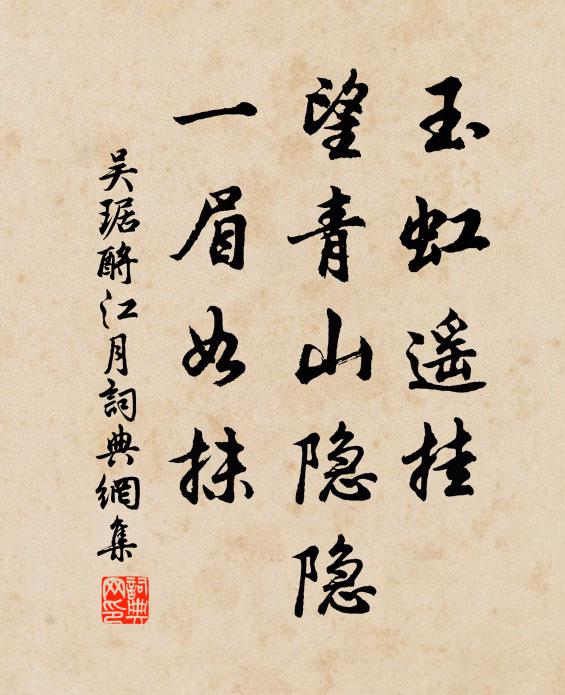 玉虹遥挂
望青山隐隐
一眉如抹
吴琚酹江月詞典網集
詞典网印